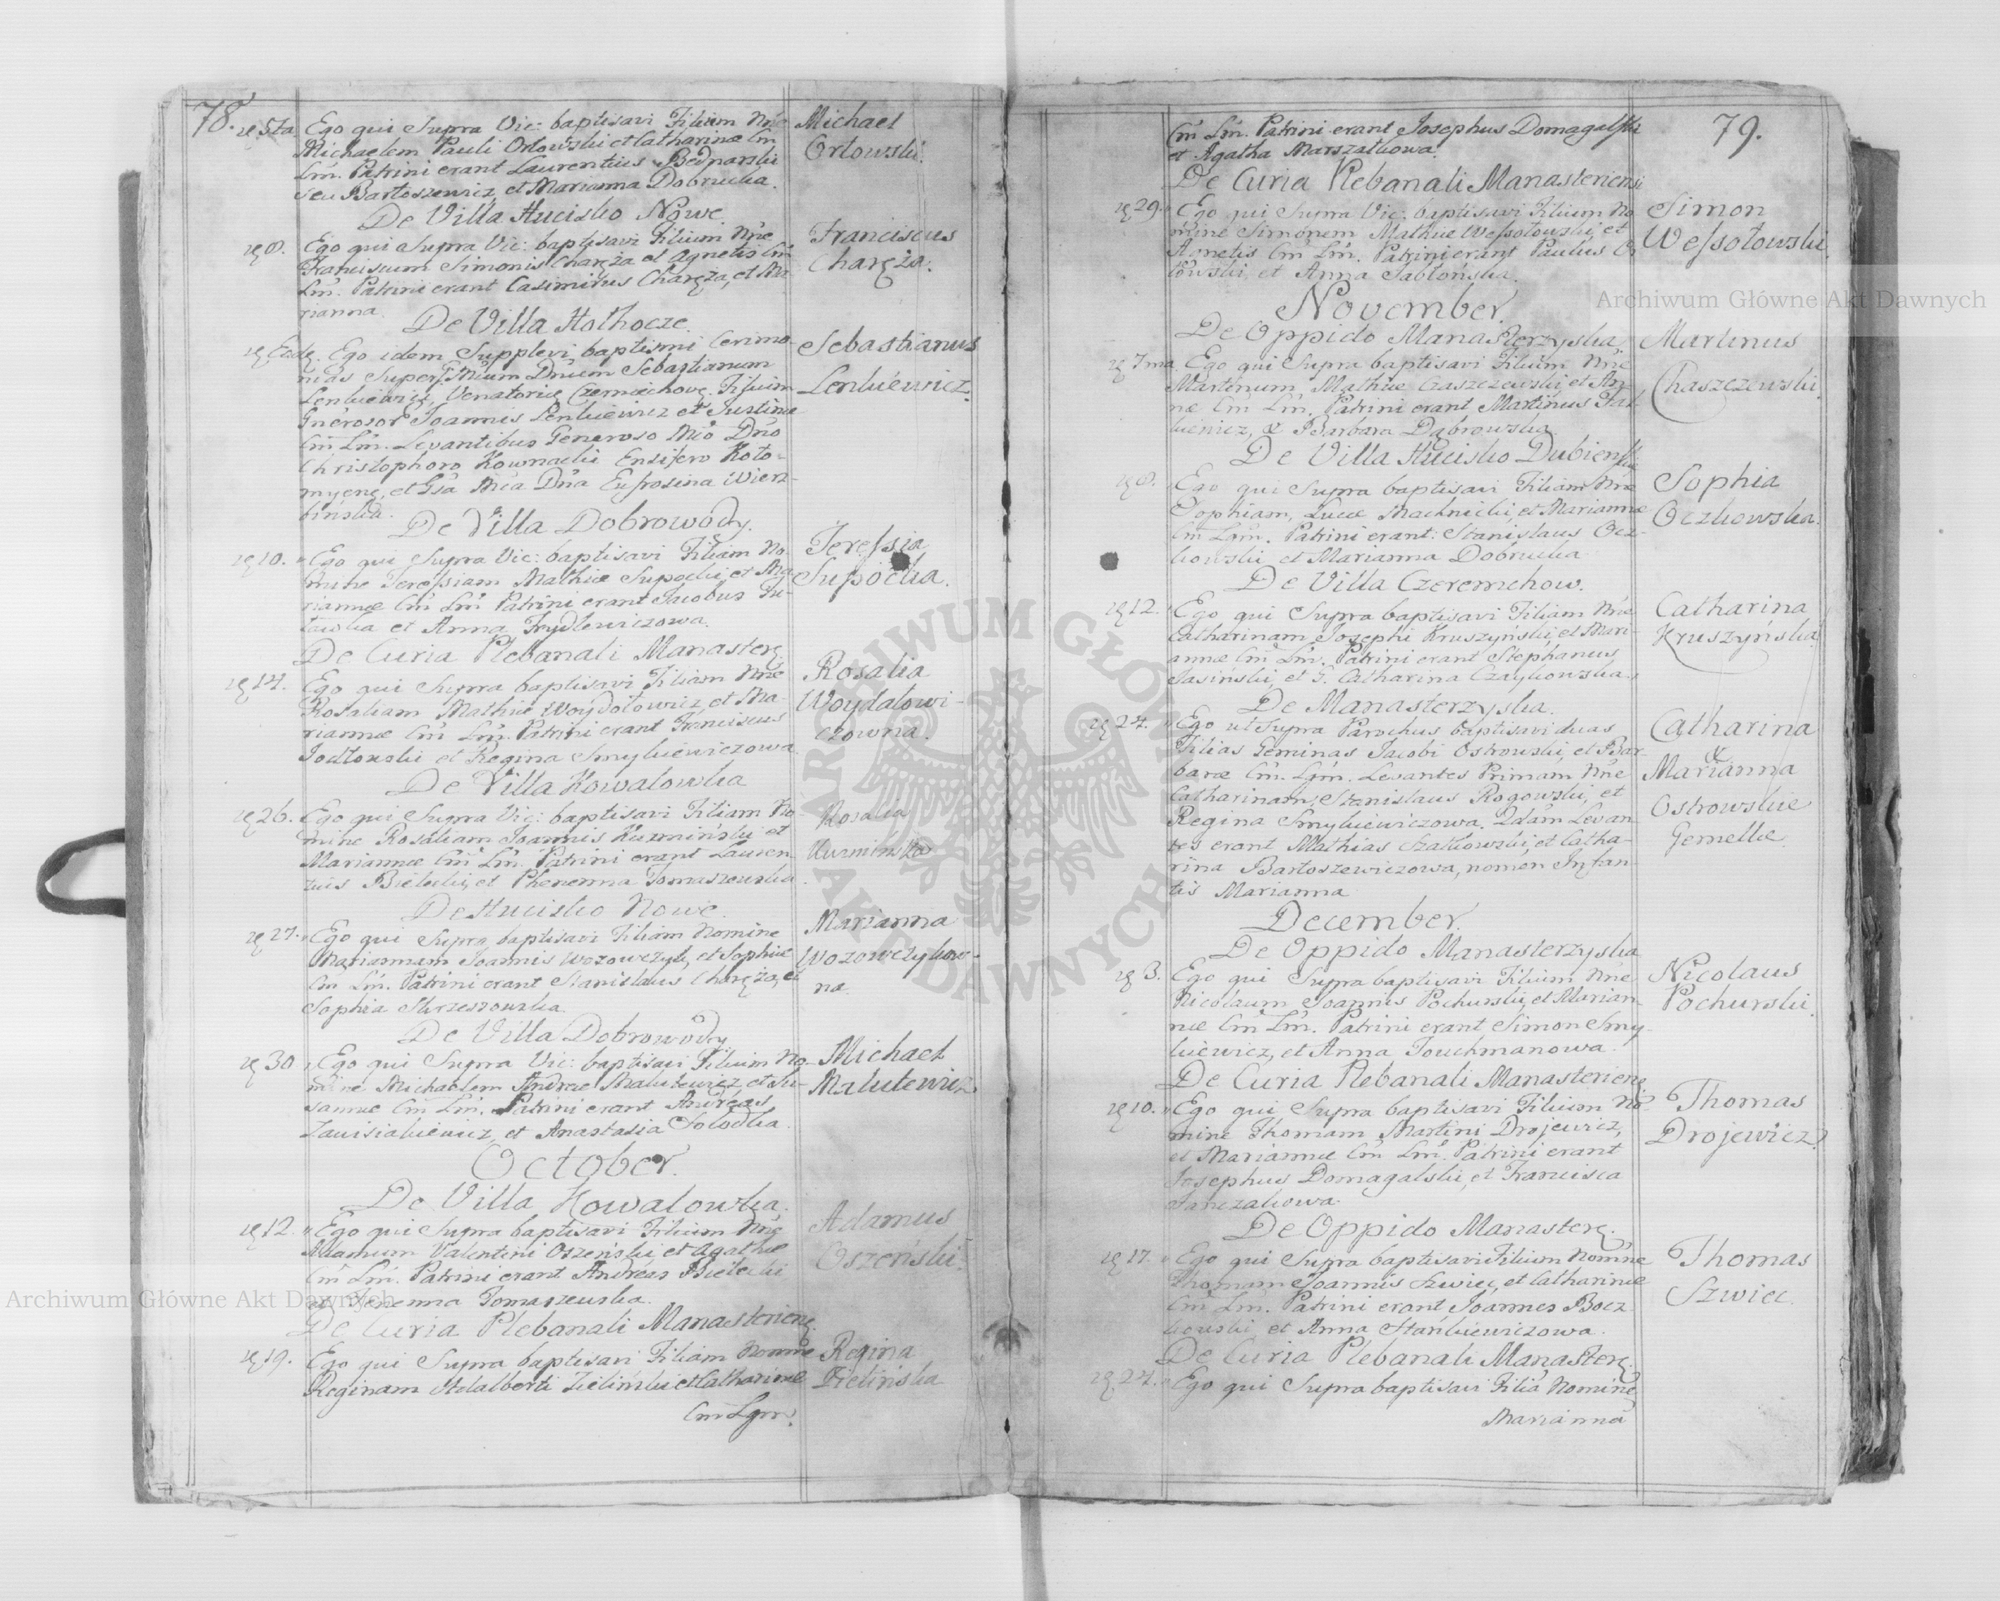 78.
5ta Ego qui Supra Vic: baptisavi Filium Nne
Michaelem Pauli Orłowski et Catharinæ Cm
Lm. Patrini erant Laurentius Bednarski
seu Bartoszewicz, et Marianna Dobrucka.
Michael
Orłowski.
De Villa Hucisko Nowe.
8. Ego qui Supra Vic: baptisavi Filium Nne
Franciscum Simonis Charęża et Agnetis Cm
Lm. Patrini erant Casimirus Charęża, et Ma
rianna.
Franciscus
Charęża.
De Villa Holhocze.
Eade. Ego idem Supplevi baptismi Cerimo-
nias super Dnum Sebastianum
Lenkiewicz, Venatoris Filium
Gnerosor Joannis Lenkiewicz et Justinæ
Cm Lm. Levantibus Generoso Dno
Christophoro Kownacki Ensifero Koło-
myens, et Dna Eufrosina Wierz-
binska.
Sebastianus
Lenkiewicz.
De Villa Dobrowody.
10. Ego qui Supra Vic: baptisavi Filiam No-
mine Teressiam Mathiæ Supocki, et Ma-
riannæ Cm Lm Patrini erant Jacobus
et Anna Frydlewiczowa.
Teressia
Supocka.
De Curia Plebanali Manasterz.
14. Ego qui Supra baptisavi Filiam Nne
Rosaliam Mathiæ Woydatowicz, et Ma-
riannæ Cm Lm. Patrini erant Franciscus
Jodłowski et Regina Smykiewiczowa.
Rosalia
Woydatowi-
czowna.
De Villa Kowalowka
26. Ego qui Supra Vic: baptisavi Filiam No-
mine Rosaliam Joannis Kuzmiński et
Mariannæ Cm Lm. Patrini erant Lauren-
tius Bielecki, et Phenenna Tomaszewska
Rosalia
Kuzmińska
De Hucisko Nowe.
27. Ego qui Supra baptisavi Filiam Nomine
Mariannam Joannis Wozowczyk, et Sophiæ
Cm Lm. Patrini erant Stanislaus Charęża, et
Sophia Skrzeszowska.
Marianna
Wozowczykow-
na.
De Villa Dobrowody
30. Ego qui Supra Vic: baptisavi Filium No-
mine Michaelem Andreæ Malutewicz et Su-
sannæ Cm Lm. Patrini erant Andreas
et Anastasia Sołodka.
Michael
Malutewicz
October.
De Villa Kowalowka.
12. Ego qui Supra baptisavi Filium Nne
Adamum Valentini Oszeński et Agathæ
Cm Lm. Patrini erant Andreas Bielecki
et Fenenna Tomaszewska.
Adamus
Oszeński.
De Curia Plebanali Manasteriens.
19. Ego qui Supra baptisavi Filiam Nomine
Reginam Adalberti Zieliński et Catharinæ
Cm Lgm.
Regina
Zielińska
79.
Cm Lm. Patrini erant Josephus Domagalski
et Agatha Marszałkowa.
De Curia Plebanali Manasteriensi
29. Ego qui Supra Vic: baptisavi Filium No
mine Simonem Mathiæ Wessołowski, et
Agnetis Cm Lm. Patrini erant Paulus Or
łowski, et Anna Jabłońska.
Simon
Wessołowski.
November.
De Oppido Manasterzyska
7ma Ego qui Supra baptisavi Filium Nne
Martinum Mathiæ Chaszczewski, et An-
næ Cm Lm. Patrini erant Martinus
& Barbara Dąbrowska.
Martinus
Chaszczewski.
De Villa Hucisko Dubiensi
8. Ego qui Supra baptisavi Filiam Nne
Sophiam, Lucæ Machnicki, et Mariannæ
Cm Lgm. Patrini erant: Stanislaus Ocz-
kowski et Marianna Dobrucka
Sophia
Oczkowska.
De Villa Czeremchow.
12. Ego qui Supra baptisavi Filiam Nne
Catharinam, Josephi Kruszyński, et Mari-
annæ Cm Lm. Patrini erant Stephanus
Jasiński, et G. Catharina Czaykowska.
Catharina
Kruszyńska
De Manasterzyska.
24. Ego ut Supra Parochus baptisavi duas
Filias Geminas Jacobi Ostrowski, et Bar-
baræ Cm. Lgm. Levantes Primam Nne
Catharinam: Stanislaus Rogowski, et
Regina Smykiewiczowa. 2dam Levan
tes erant Mathias Szałkowski, et Catha-
rina Bartoszewiczowa, nomen Infan-
tis Marianna
Catharina
&
Marianna
Ostrowskie
Gemellæ.
December.
De Oppido Manasterzyska
3. Ego qui Supra baptisavi Filium Nne
Nicolaum Joannis Pochurski, et Marian-
næ Cm Lm. Patrini erant Simon Smy-
kiewicz, et Anna Touchmanowa.
Nicolaus
Pochurski.
De Curia Plebanali Manasteriens.
10. Ego qui Supra baptisavi Filium No-
mine Thomam Martini Drojewicz,
et Mariannæ Cm Lm. Patrini erant
Josephus Domagalski, et Francisca
Janczakowa.
Thomas
Drojewicz
De Oppido Manasterz.
17. Ego qui Supra baptisavi Filium Nomine
Thomam Joannis Szwiec, et Catharinæ
Cm Lm. Patrini erant Joannes Bocz
kowski et Anna Stańkiewiczowa.
Thomas
Szwiec.
De Curia Plebanali Manasterz.
24. Ego qui Supra baptisavi Filia Nomine
Marianna
Archiwum Główne Akt Dawnych
Archiwum Główne Akt Dawnych
ARCHIWUM GŁÓWNE AKT DAWNYCH